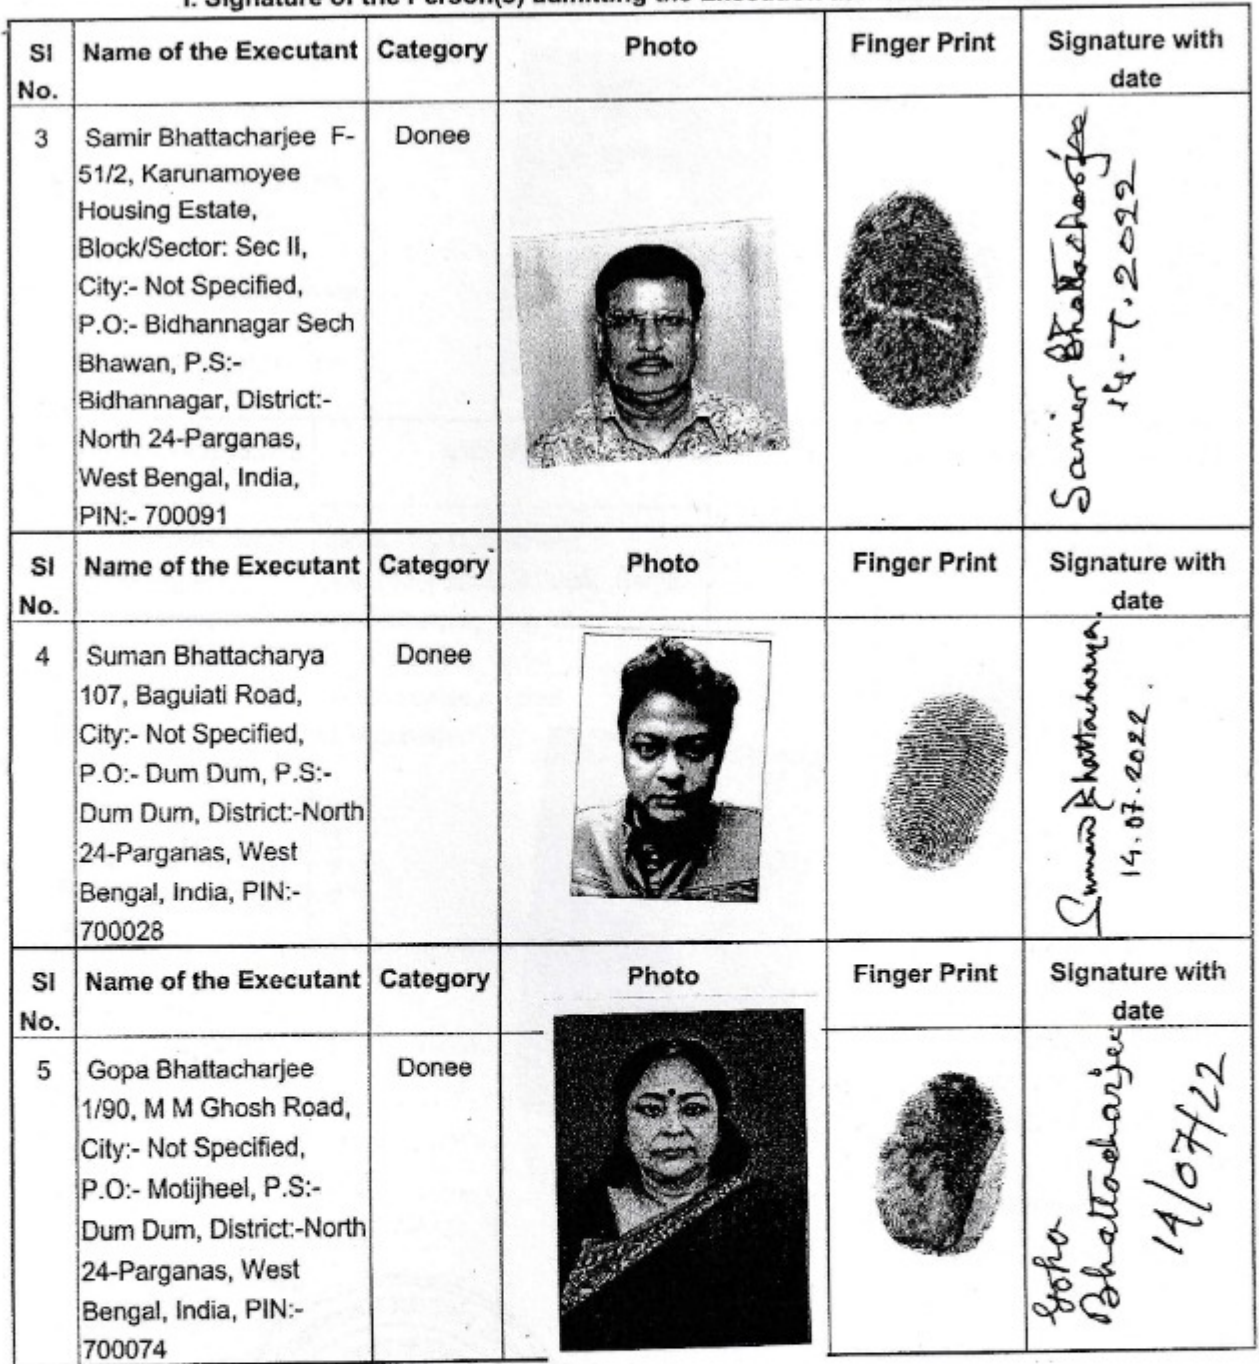 I. Signature of the Person(s) admitting the Execution
Sl No.
Name of the Executant
Category
Photo
Finger Print
Signature with date
3
Samir Bhattacharjee F-
51/2, Karunamoyee
Housing Estate,
Block/Sector: Sec II,
City:- Not Specified,
P.O:- Bidhannagar Sech
Bhawan, P.S:-
Bidhannagar, District:-
North 24-Parganas,
West Bengal, India,
PIN:- 700091
Donee
Samir Bhattacharjee
14.7.2022
Sl No.
Name of the Executant
Category
Photo
Finger Print
Signature with date
4
Suman Bhattacharya
107, Baguiati Road,
City:- Not Specified,
P.O:- Dum Dum, P.S:-
Dum Dum, District:-North
24-Parganas, West
Bengal, India, PIN:-
700028
Donee
Suman Bhattacharya.
14.07.2022.
Sl No.
Name of the Executant
Category
Photo
Finger Print
Signature with date
5
Gopa Bhattacharjee
1/90, M M Ghosh Road,
City:- Not Specified,
P.O:- Motijheel, P.S:-
Dum Dum, District:-North
24-Parganas, West
Bengal, India, PIN:-
700074
Donee
Gopa
Bhattacharjee
14/07/22